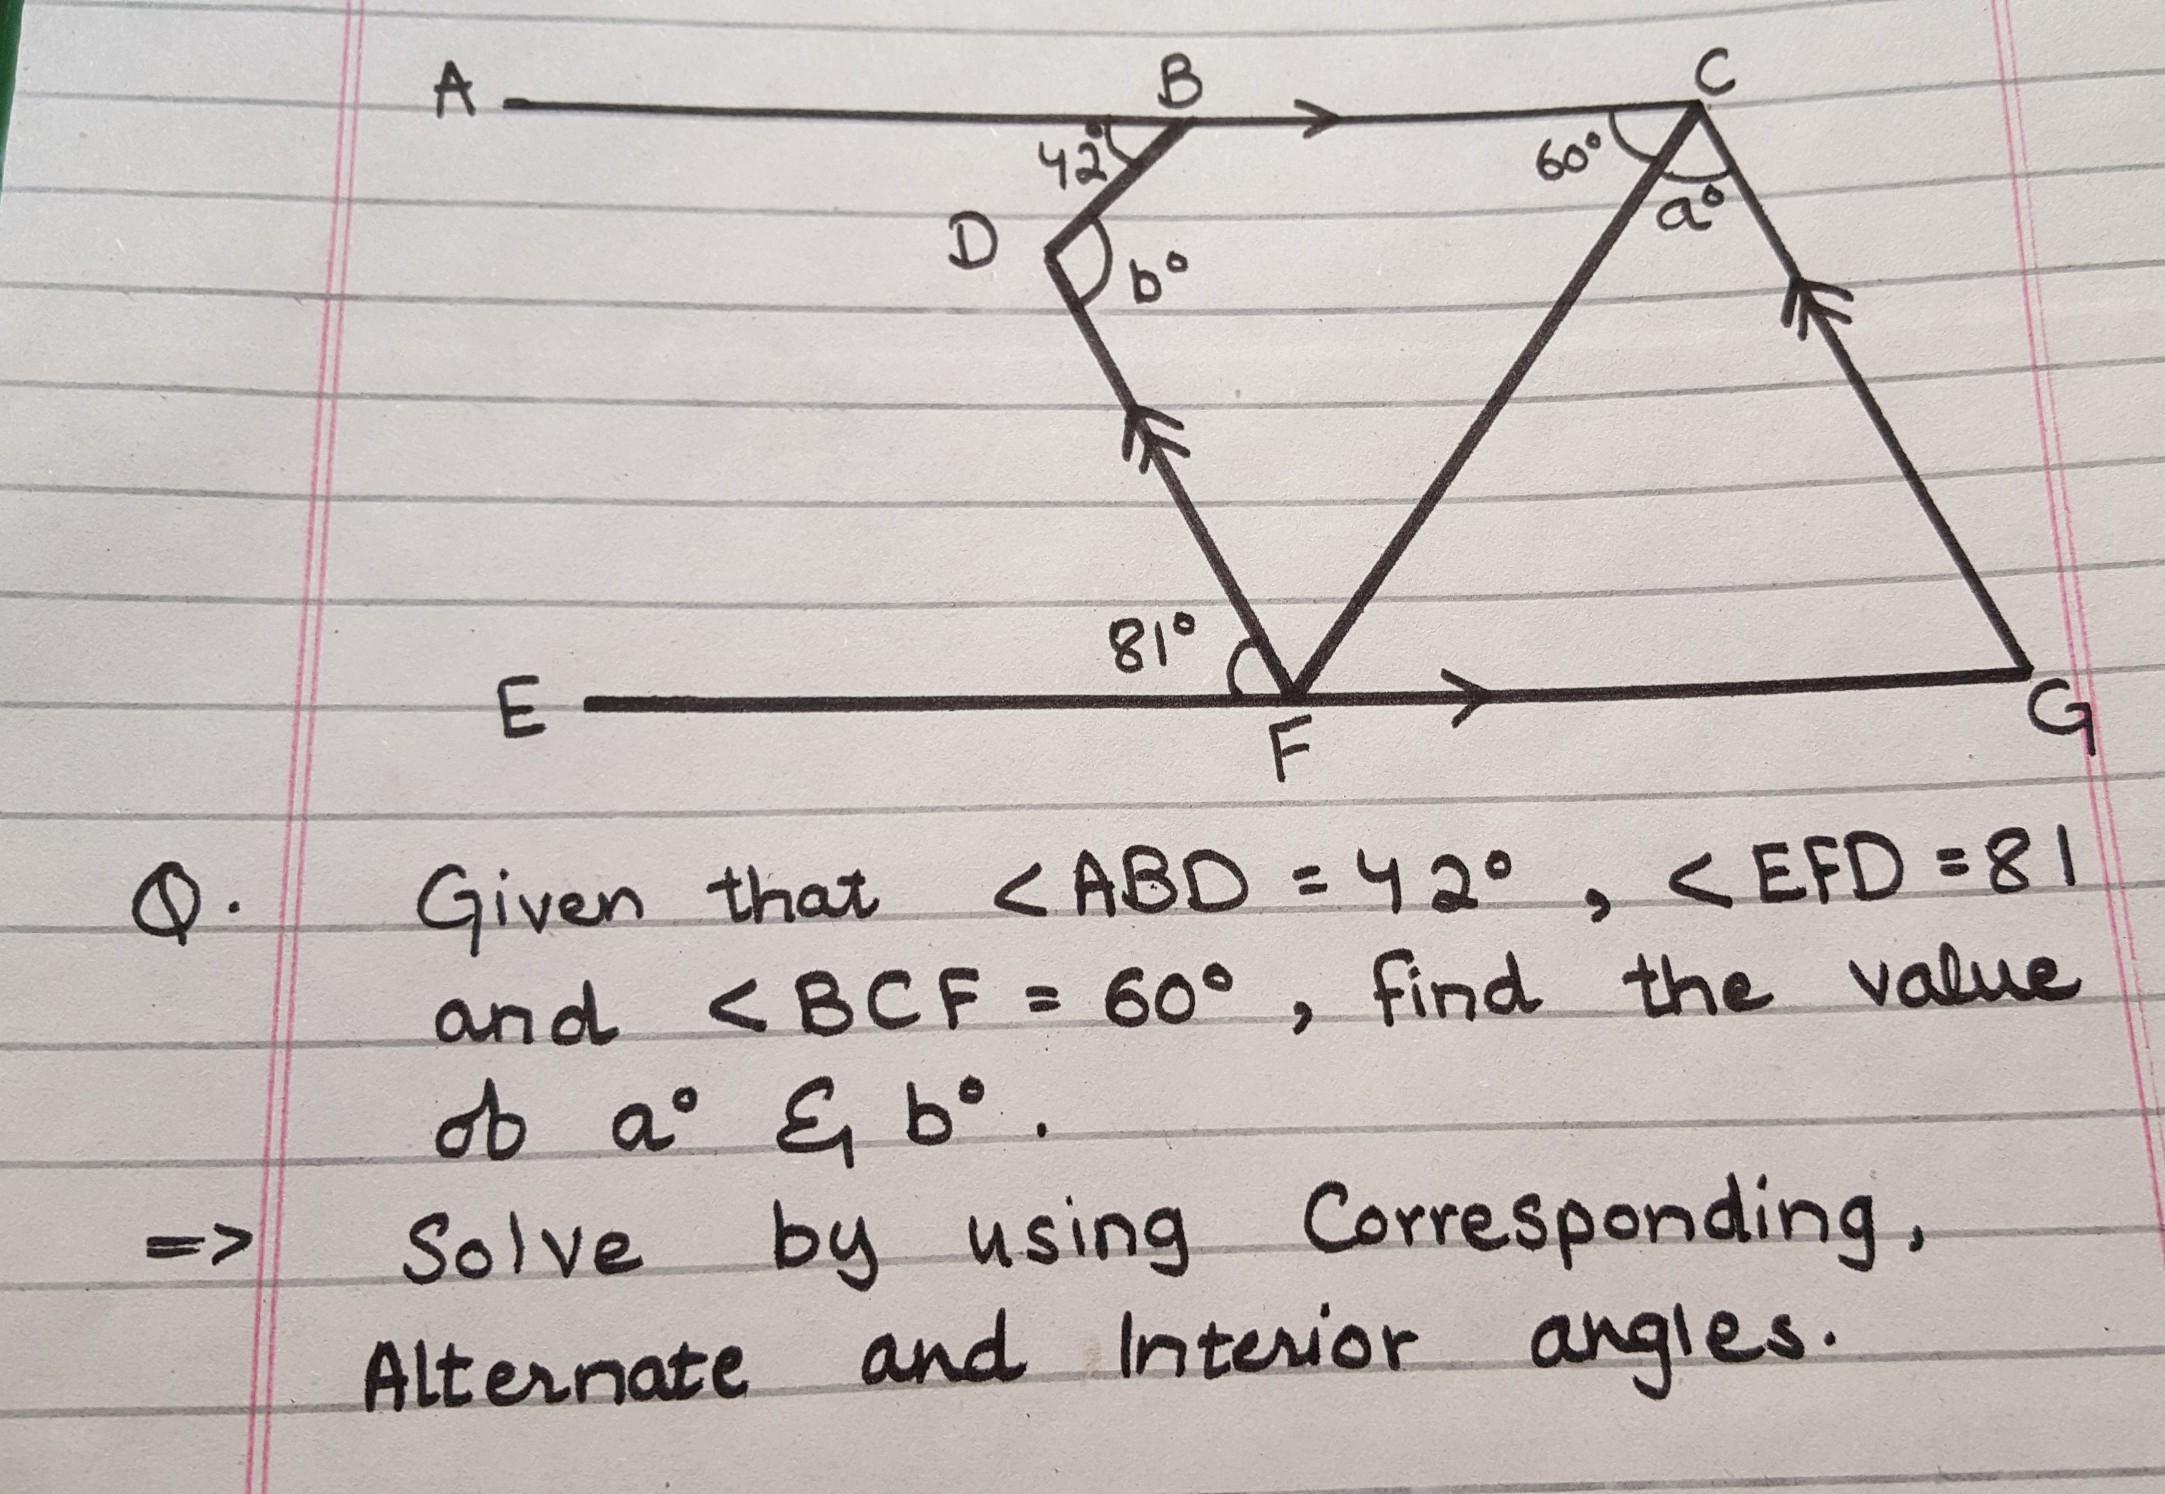 A B C
42° 60° a°
D b°
81°
E F G
Q. Given that <ABD = 42° , <EFD = 81
and <BCF = 60° , find the value
of a° & b° .
=> Solve by using Corresponding,
Alternate and Interior angles.